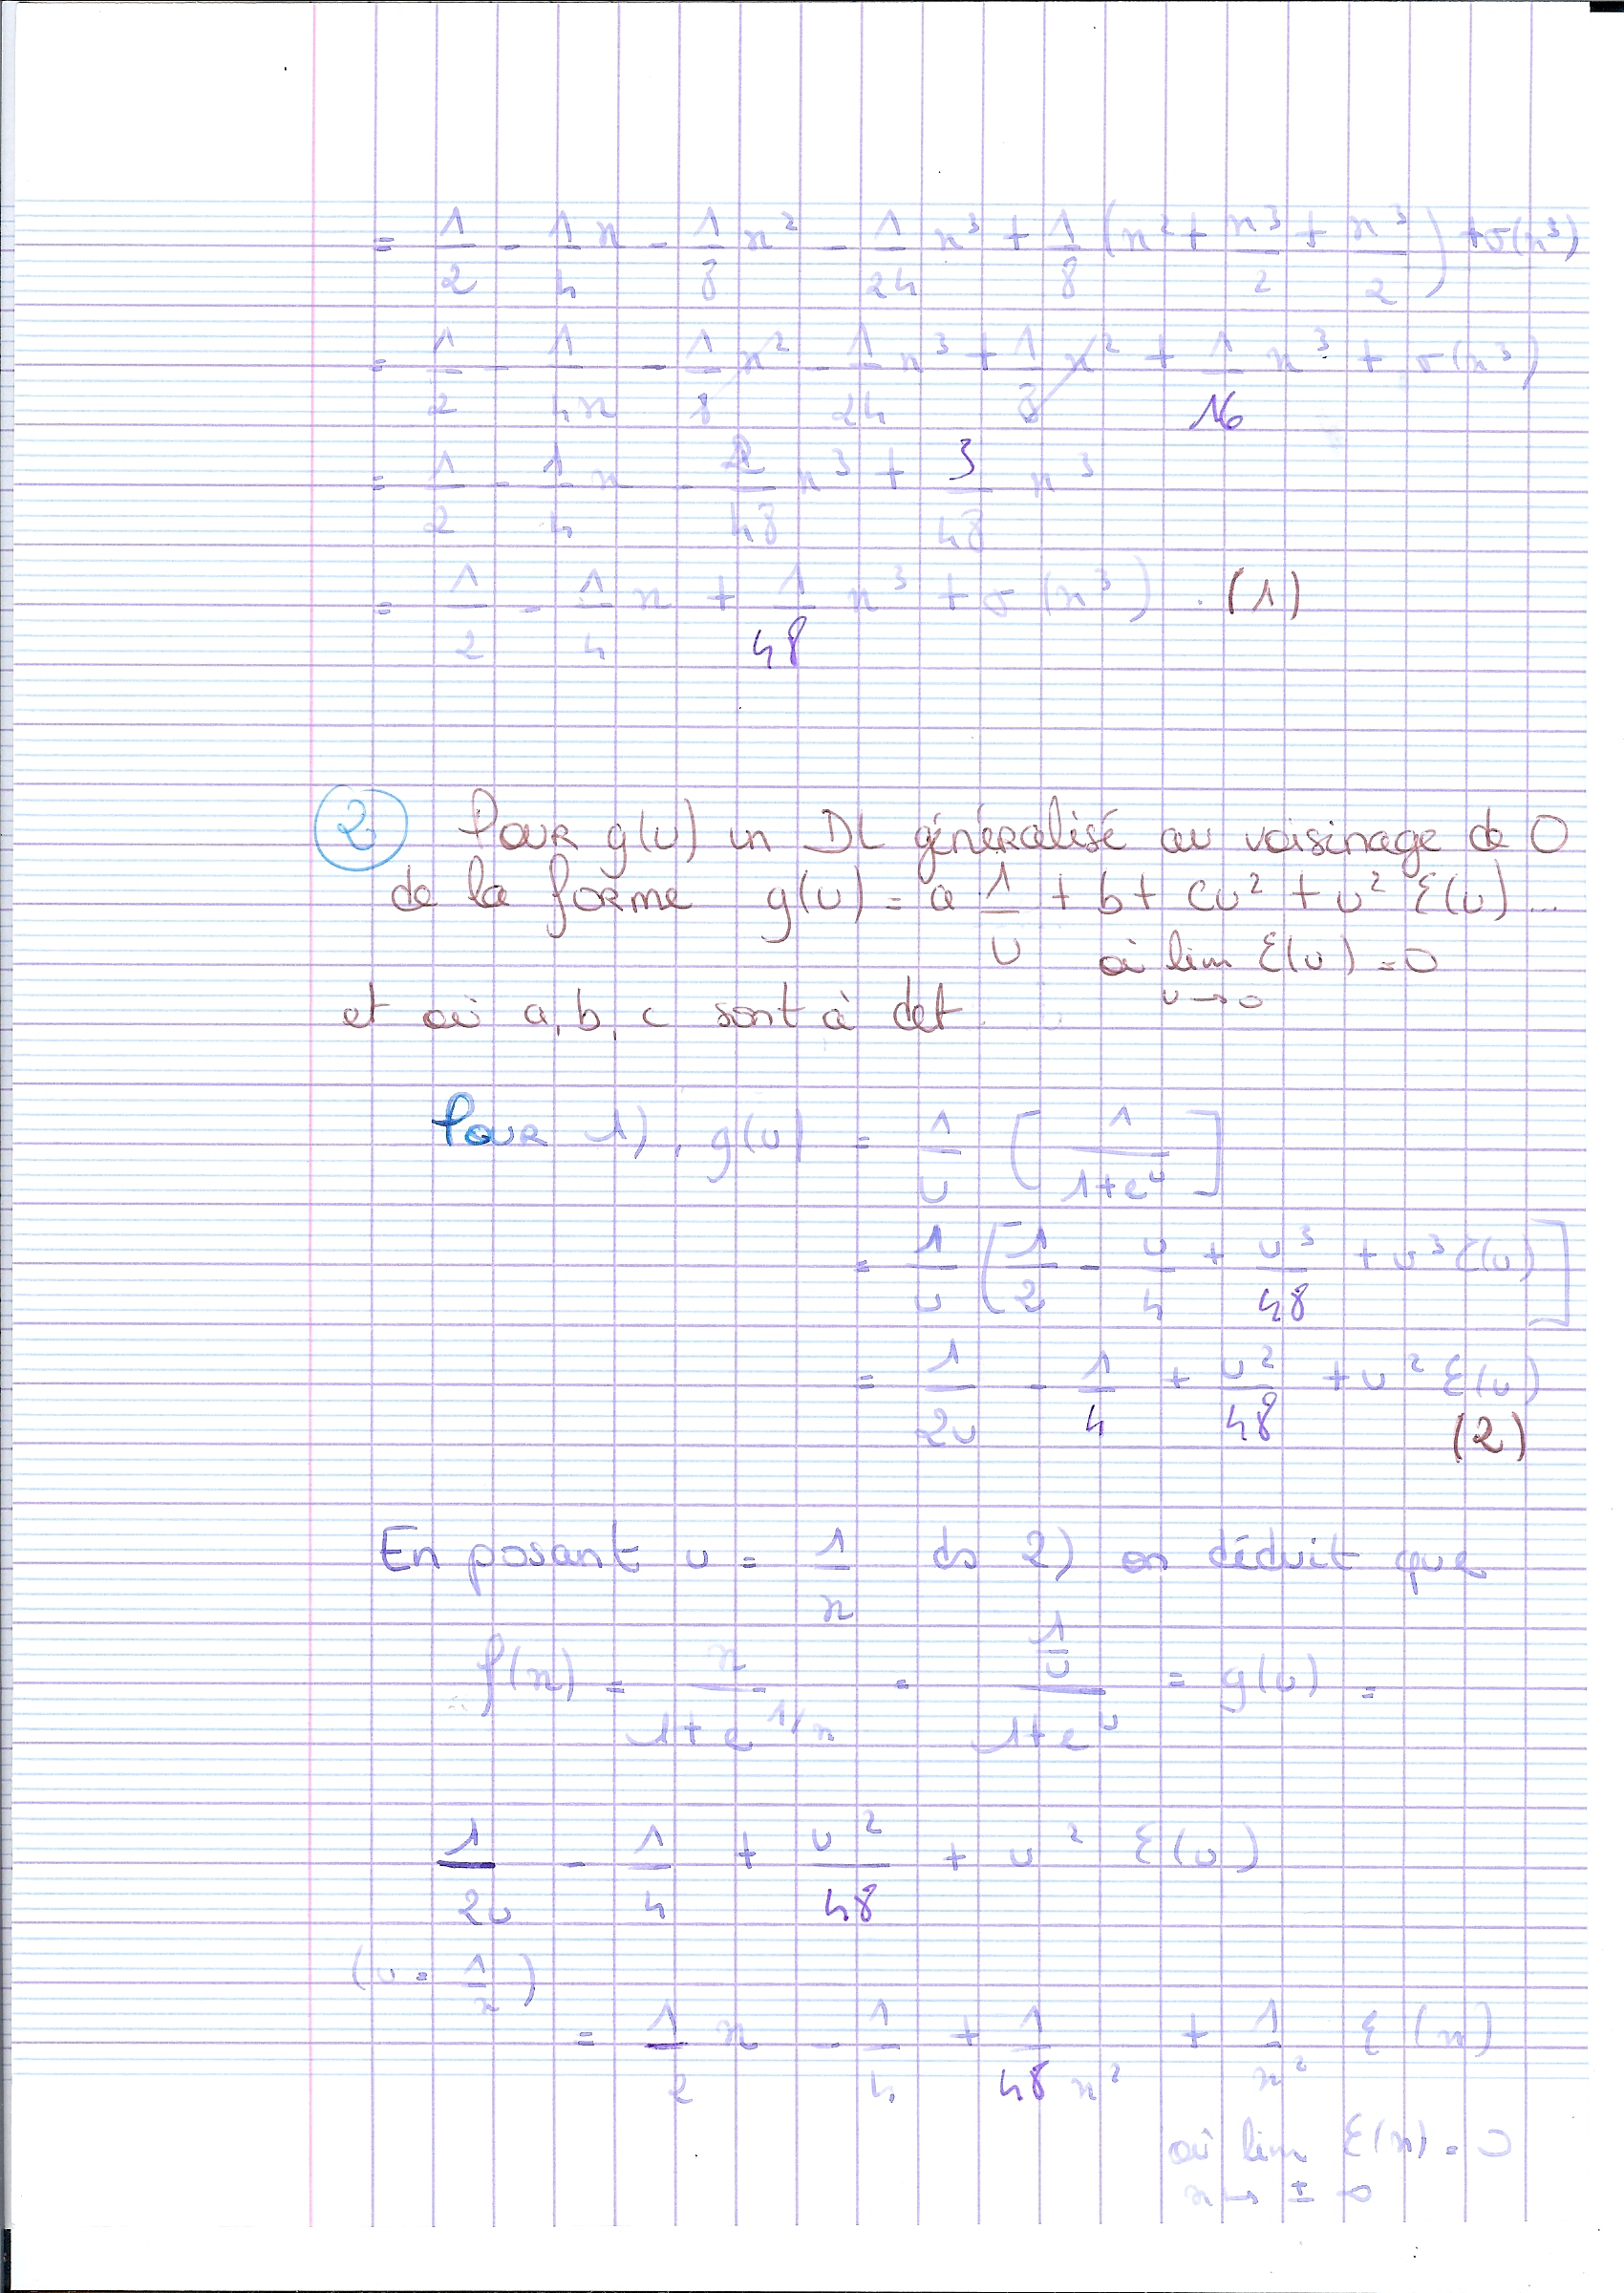 = 1/2 - 1/4 x - 1/8 x² - 1/24 x³ + 1/8 (x² + x³/2 + x³/2) + o(x³)
= 1/2 - 1/4x - 1/8 x² - 1/24 x³ + 1/8 x² + 1/16 x³ + o(x³)
= 1/2 - 1/4 x - 2/48 x³ + 3/48 x³
= 1/2 - 1/4 x + 1/48 x³ + o(x³). (1)
② Pour g(u) un DL généralisé au voisinage de 0
de la forme g(u) = a 1/u + b + cu² + u² ε(u)...
où lim ε(u) = 0
u→0
et où a, b, c sont à det.
Pour 1), g(u) = 1/u [1/(1+e^u)]
= 1/u [1/2 - u/4 + u³/48 + u³ ε(u)]
= 1/2u - 1/4 + u²/48 + u² ε(u)
(2)
En posant u = 1/x ds 2) on déduit que
f(x) = x/(1+e^(1/x)) = (1/u)/(1+e^u) = g(u) =
1/2u - 1/4 + u²/48 + u² ε(u)
(u = 1/x)
= 1/2 x - 1/4 + 1/48x² + 1/x² ε(x)
où lim ε(x) = 0
x → ± ∞